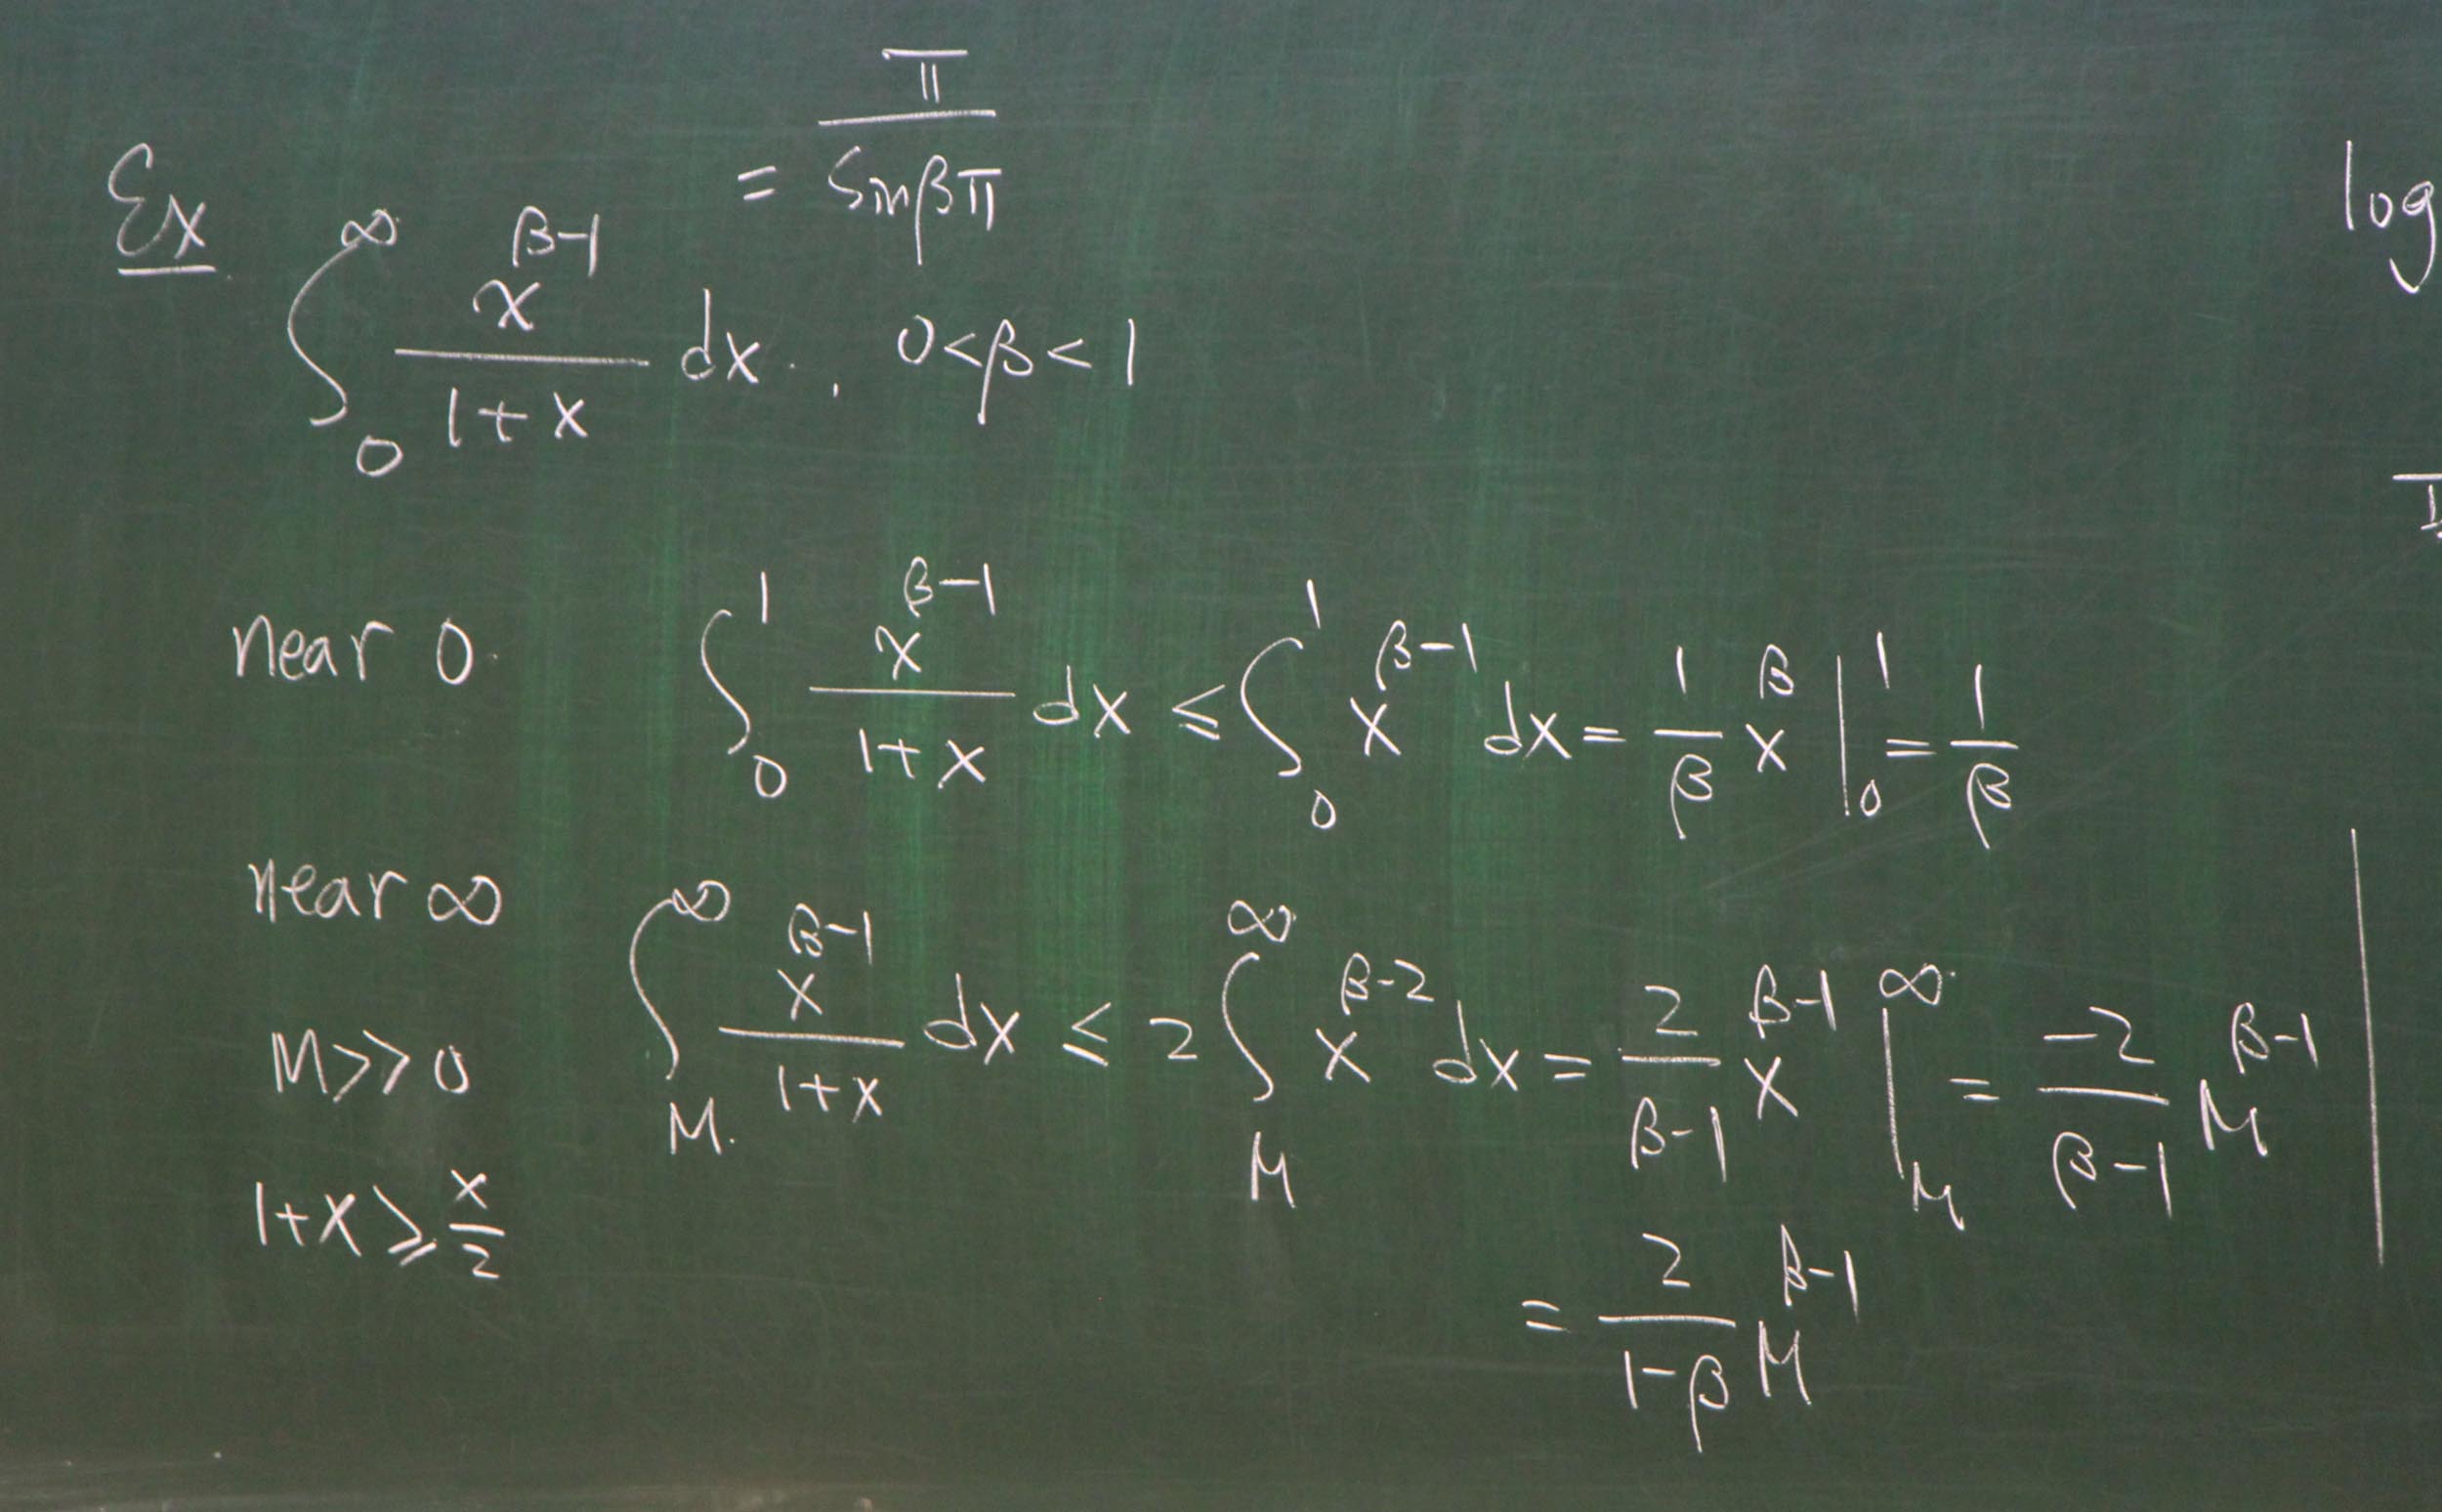 = π / sinβπ
Ex ∫₀^∞ x^(β-1) / (1+x) dx. , 0<β<1
log
near 0. ∫₀^1 x^(β-1) / (1+x) dx ≤ ∫₀^1 x^(β-1) dx = 1/β x^β |₀^1 = 1/β
near ∞ ∫_M^∞ x^(β-1) / (1+x) dx ≤ 2 ∫_M^∞ x^(β-2) dx = 2/(β-1) x^(β-1) |_M^∞ = -2/(β-1) M^(β-1)
M>>0
1+x ≥ x/2
= 2/(1-β) M^(β-1)